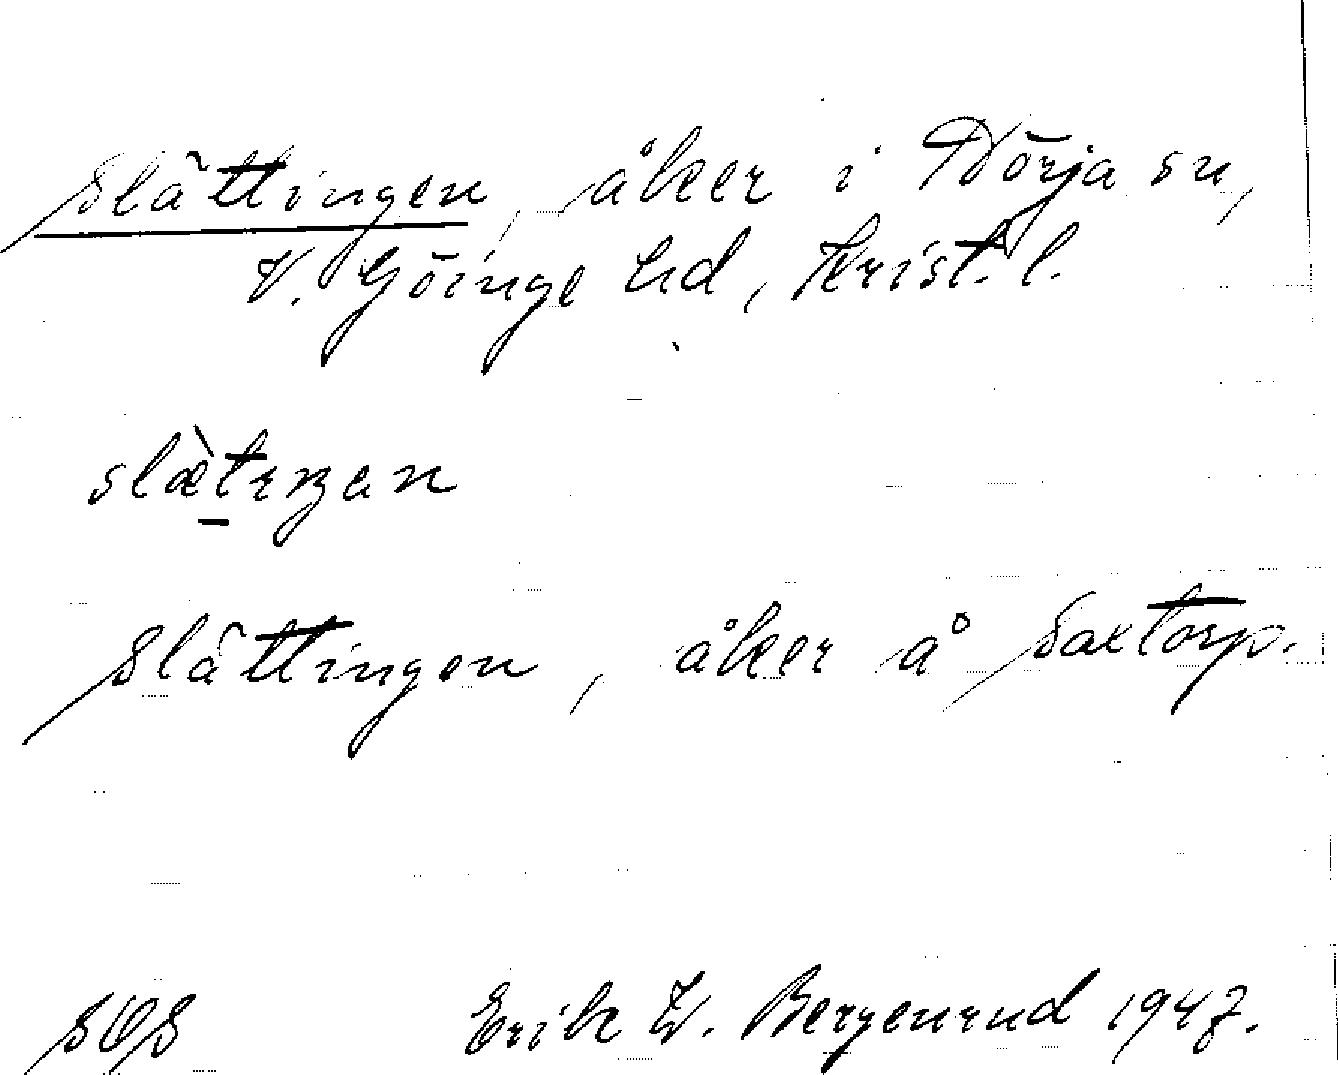 Slättingen, åker i Nörja sn,
V. Göinge hd, Krist. l.
slæ̀tıŋan
Slättingen, åker å Saxtorp.
SOS Erik W. Bergenrud 1947.